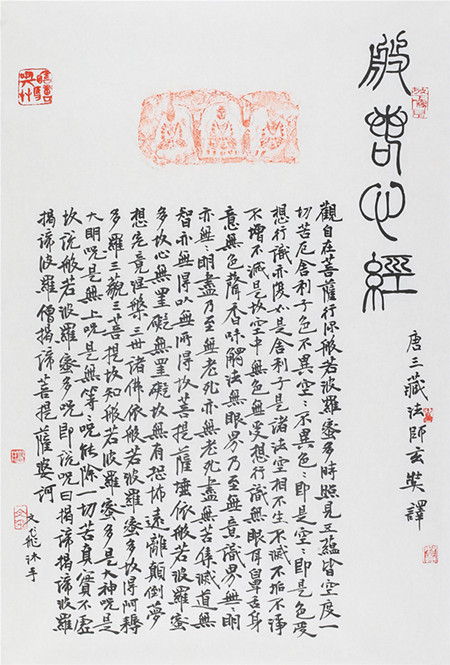 般若心經
唐三藏法師玄奘譯
觀自在菩薩行深般若波羅蜜多時照見五蘊皆空度一
切苦厄舍利子色不異空〻不異色〻即是空〻即是色受
想行識亦復如是舍利子是諸法空相不生不滅不垢不淨
不增不減是故空中無色無受想行識無眼耳鼻舌身
意無色聲香味觸法無眼界乃至無意識界無〻明
亦無〻明盡乃至無老死亦無老死盡無苦集滅道無
智亦無得以無所得故菩提薩埵依般若波羅蜜
多故心無罣礙無罣礙故無有恐怖遠離顛倒夢
想究竟涅槃三世諸佛依般若波羅蜜多故得阿耨
多羅三藐三菩提故知般若波羅蜜多是大神咒是
大明咒是無上咒是無等〻咒能除一切苦真實不虛
故說般若波羅蜜多咒即說咒曰揭諦揭諦波羅
揭諦波羅僧揭諦菩提薩婆訶
文龍沐手